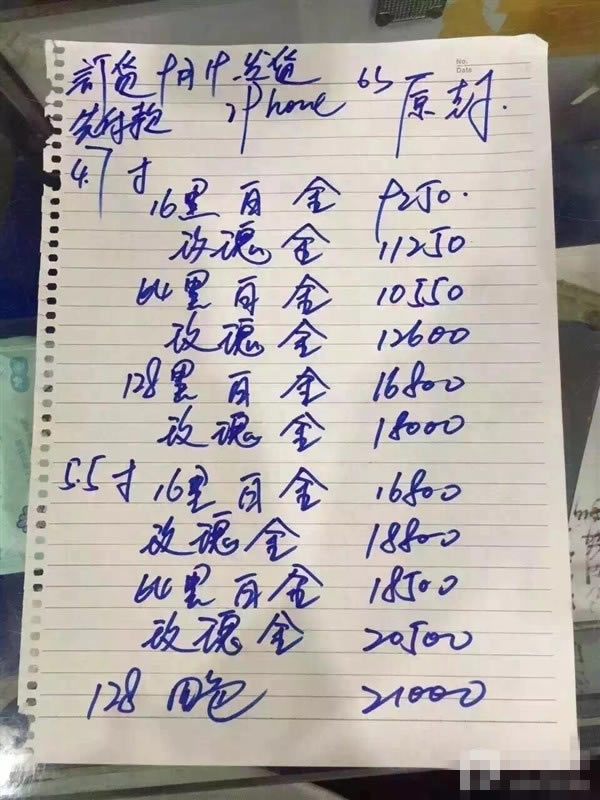 訂货 十月中发货
先付款
iPhone 6S 原封.
No.
Date
4.7寸
16黑 白 金 9250.
玫瑰金 11250
64黑 白 金 10550
玫瑰金 12600
128黑 白 金 16800
玫瑰金 18000
5.5寸 16黑 白 金 16800
玫瑰金 18800
64黑 白 金 18500
玫瑰金 20500
128 四色 21000